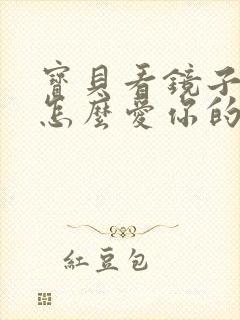 寶貝看鏡子
怎麼愛你的
紅豆包